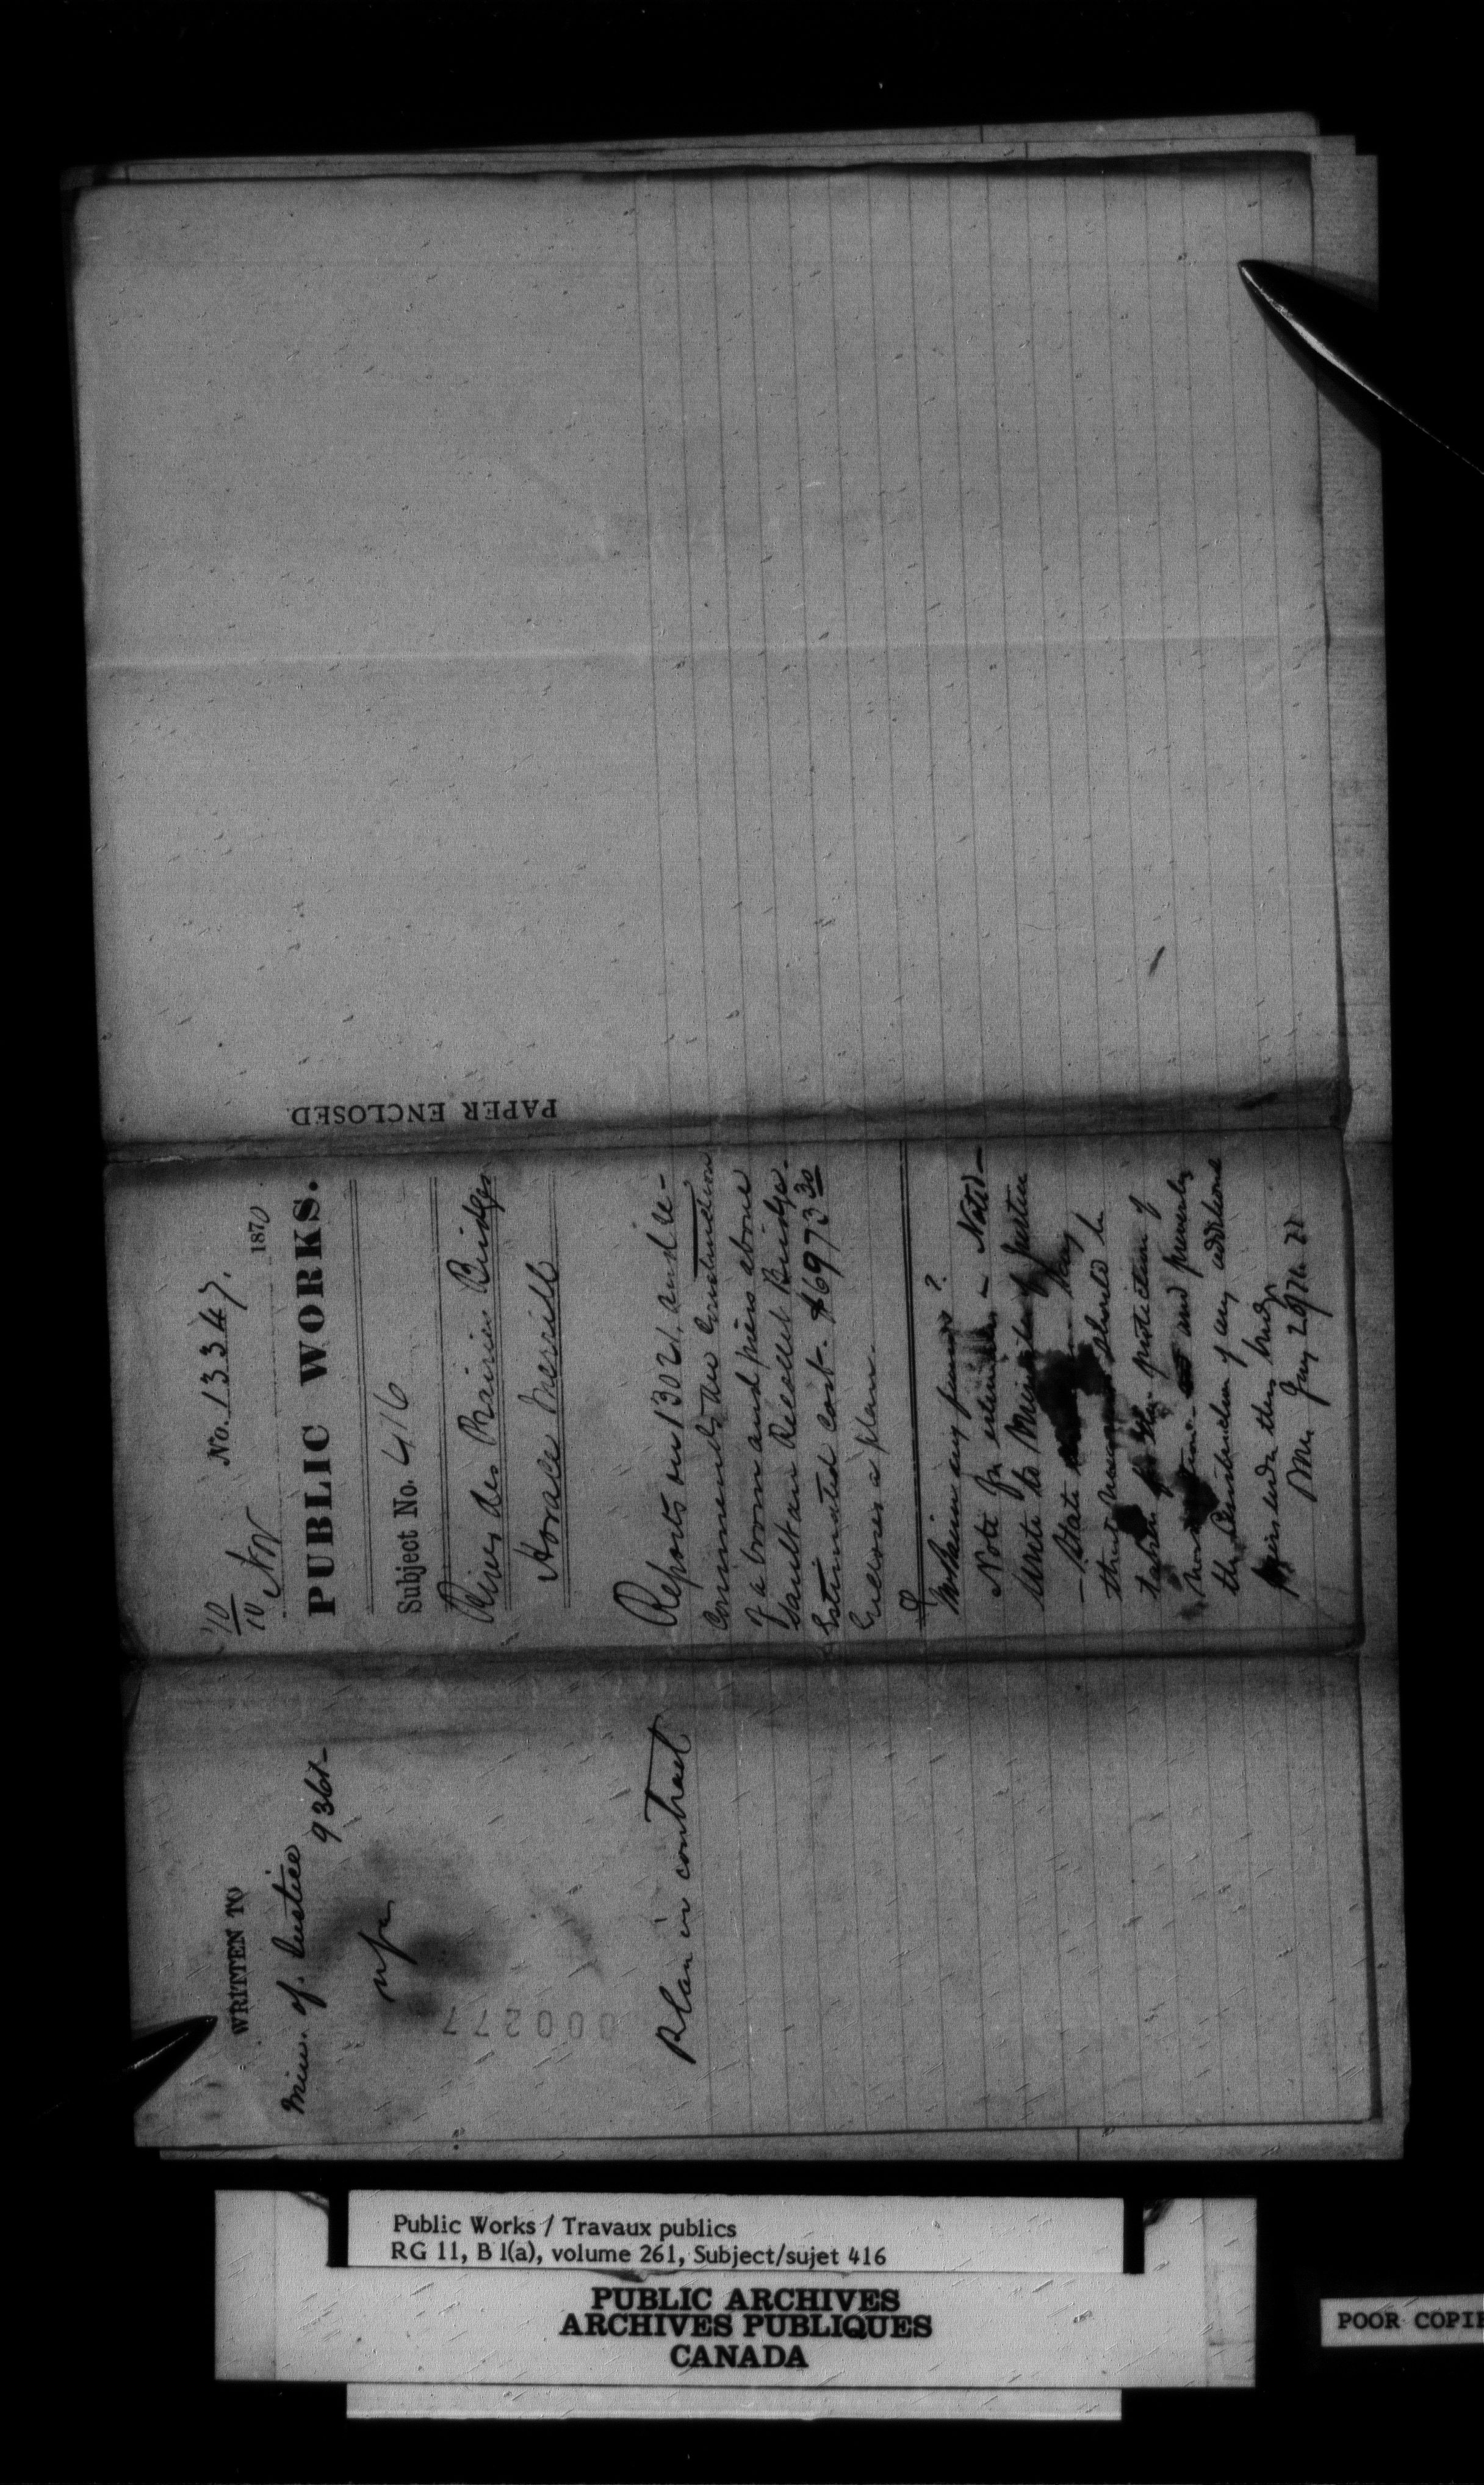 10/10 Nov No. 13347. 1870
PUBLIC WORKS.
Subject No. 416
River des Prairies Bridges
Horace Merrill
Reports on 13021, and re-
commends the construction
of a boom and piers above
Sault au Recollet Bridge.
Estimated cost. $6973 30
Encloses a plan.
any funds?
Note for estimates - Noted -
Write to Minister of Justice
- State
that should be
taken for the protection of
and preventing
the construction of any additional
piers under this bridge
Jany 29/70
PAPER ENCLOSED
WRITTEN TO
Min. of Justice
9361-
000277
Plan in contract
Public Works / Travaux publics
RG 11, B 1(a), volume 261, Subject/sujet 416
PUBLIC ARCHIVES
ARCHIVES PUBLIQUES
CANADA
POOR COPIE